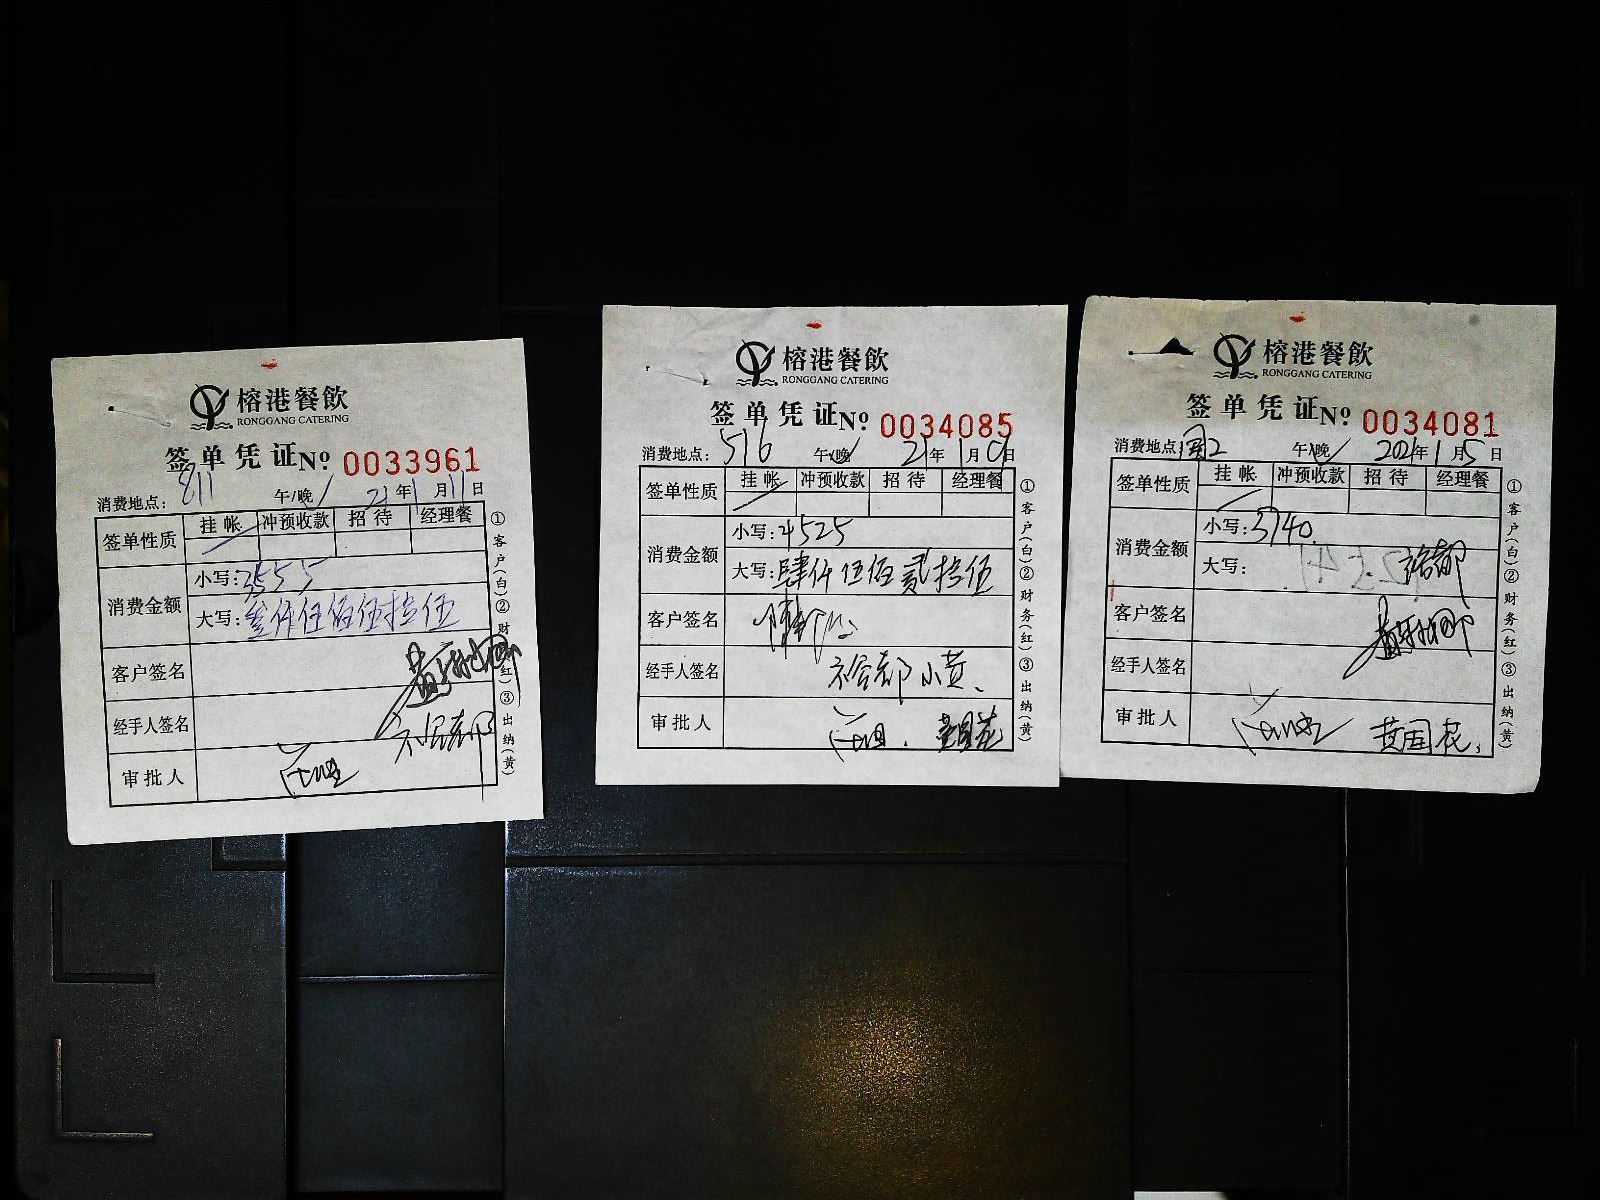 榕港餐飲
RONGGANG CATERING
签单凭证 No 0033961
消费地点: 811 午/晚 21年1月11日
签单性质 挂帐 冲预收款 招待 经理餐
消费金额 小写: 3555
大写: 叁仟伍佰伍拾伍
客户签名
经手人签名
审批人
①客户(白)②财务(红)③出纳(黄)
榕港餐飲
RONGGANG CATERING
签单凭证 No 0034085
消费地点: 516 午/晚 21年1月 日
签单性质 挂帐 冲预收款 招待 经理餐
消费金额 小写: 4525
大写: 肆仟伍佰贰拾伍
客户签名
经手人签名 小黄
审批人 黄国花
①客户(白)②财务(红)③出纳(黄)
榕港餐飲
RONGGANG CATERING
签单凭证 No 0034081
消费地点: 午/晚 2021年1月5日
签单性质 挂帐 冲预收款 招待 经理餐
消费金额 小写: 3740
大写:
客户签名
经手人签名
审批人 黄国花
①客户(白)②财务(红)③出纳(黄)